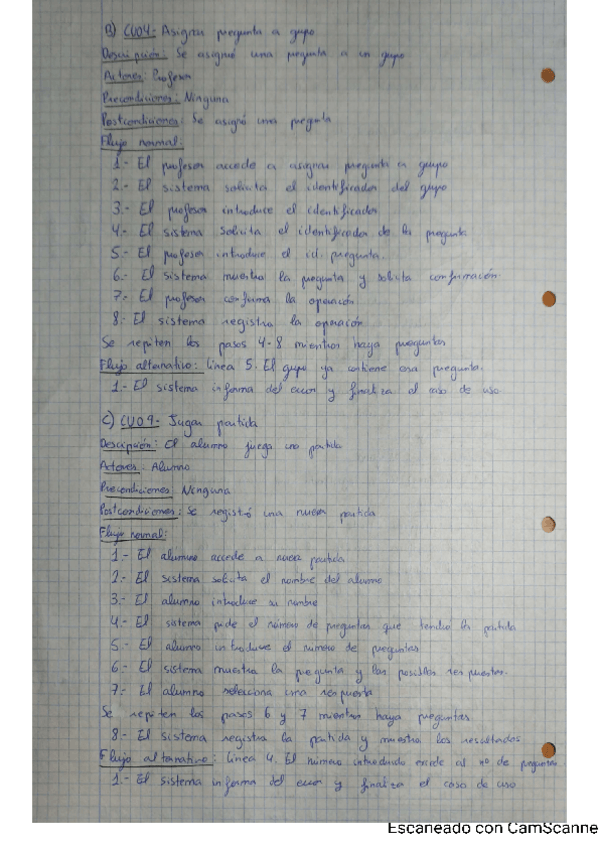 B) CU04- Asignar pregunta a grupo
Descripción: Se asignó una pregunta a un grupo
Actores: Profesor
Precondiciones: Ninguna
Postcondiciones: Se asignó una pregunta
Flujo normal:
1.- El profesor accede a asignar pregunta a grupo
2.- El sistema solicita el identificador del grupo
3.- El profesor introduce el identificador
4.- El sistema solicita el identificador de la pregunta
5.- El profesor introduce el id. pregunta.
6.- El sistema muestra la pregunta y solicita confirmación.
7.- El profesor confirma la operación
8.- El sistema registra la operación
Se repiten los pasos 4-8 mientras haya preguntas
Flujo alternativo: línea 5. El grupo ya contiene esa pregunta.
1.- El sistema informa del error y finaliza el caso de uso
C) CU09- Jugar partida
Descripción: El alumno juega una partida
Actores: Alumno
Precondiciones: Ninguna
Postcondiciones: Se registró una nueva partida
Flujo normal:
1.- El alumno accede a nueva partida
2.- El sistema solicita el nombre del alumno
3.- El alumno introduce su nombre
4.- El sistema pide el número de preguntas que tendrá la partida
5.- El alumno introduce el numero de preguntas
6.- El sistema muestra la pregunta y las posibles respuestas.
7.- El alumno selecciona una respuesta
Se repiten los pasos 6 y 7 mientras haya preguntas.
8.- El sistema registra la partida y muestra los resultados
Flujo alternativo: línea 4. El número introducido excede al nº de preguntas.
1.- El sistema informa del error y finaliza el caso de uso
Escaneado con CamScanne